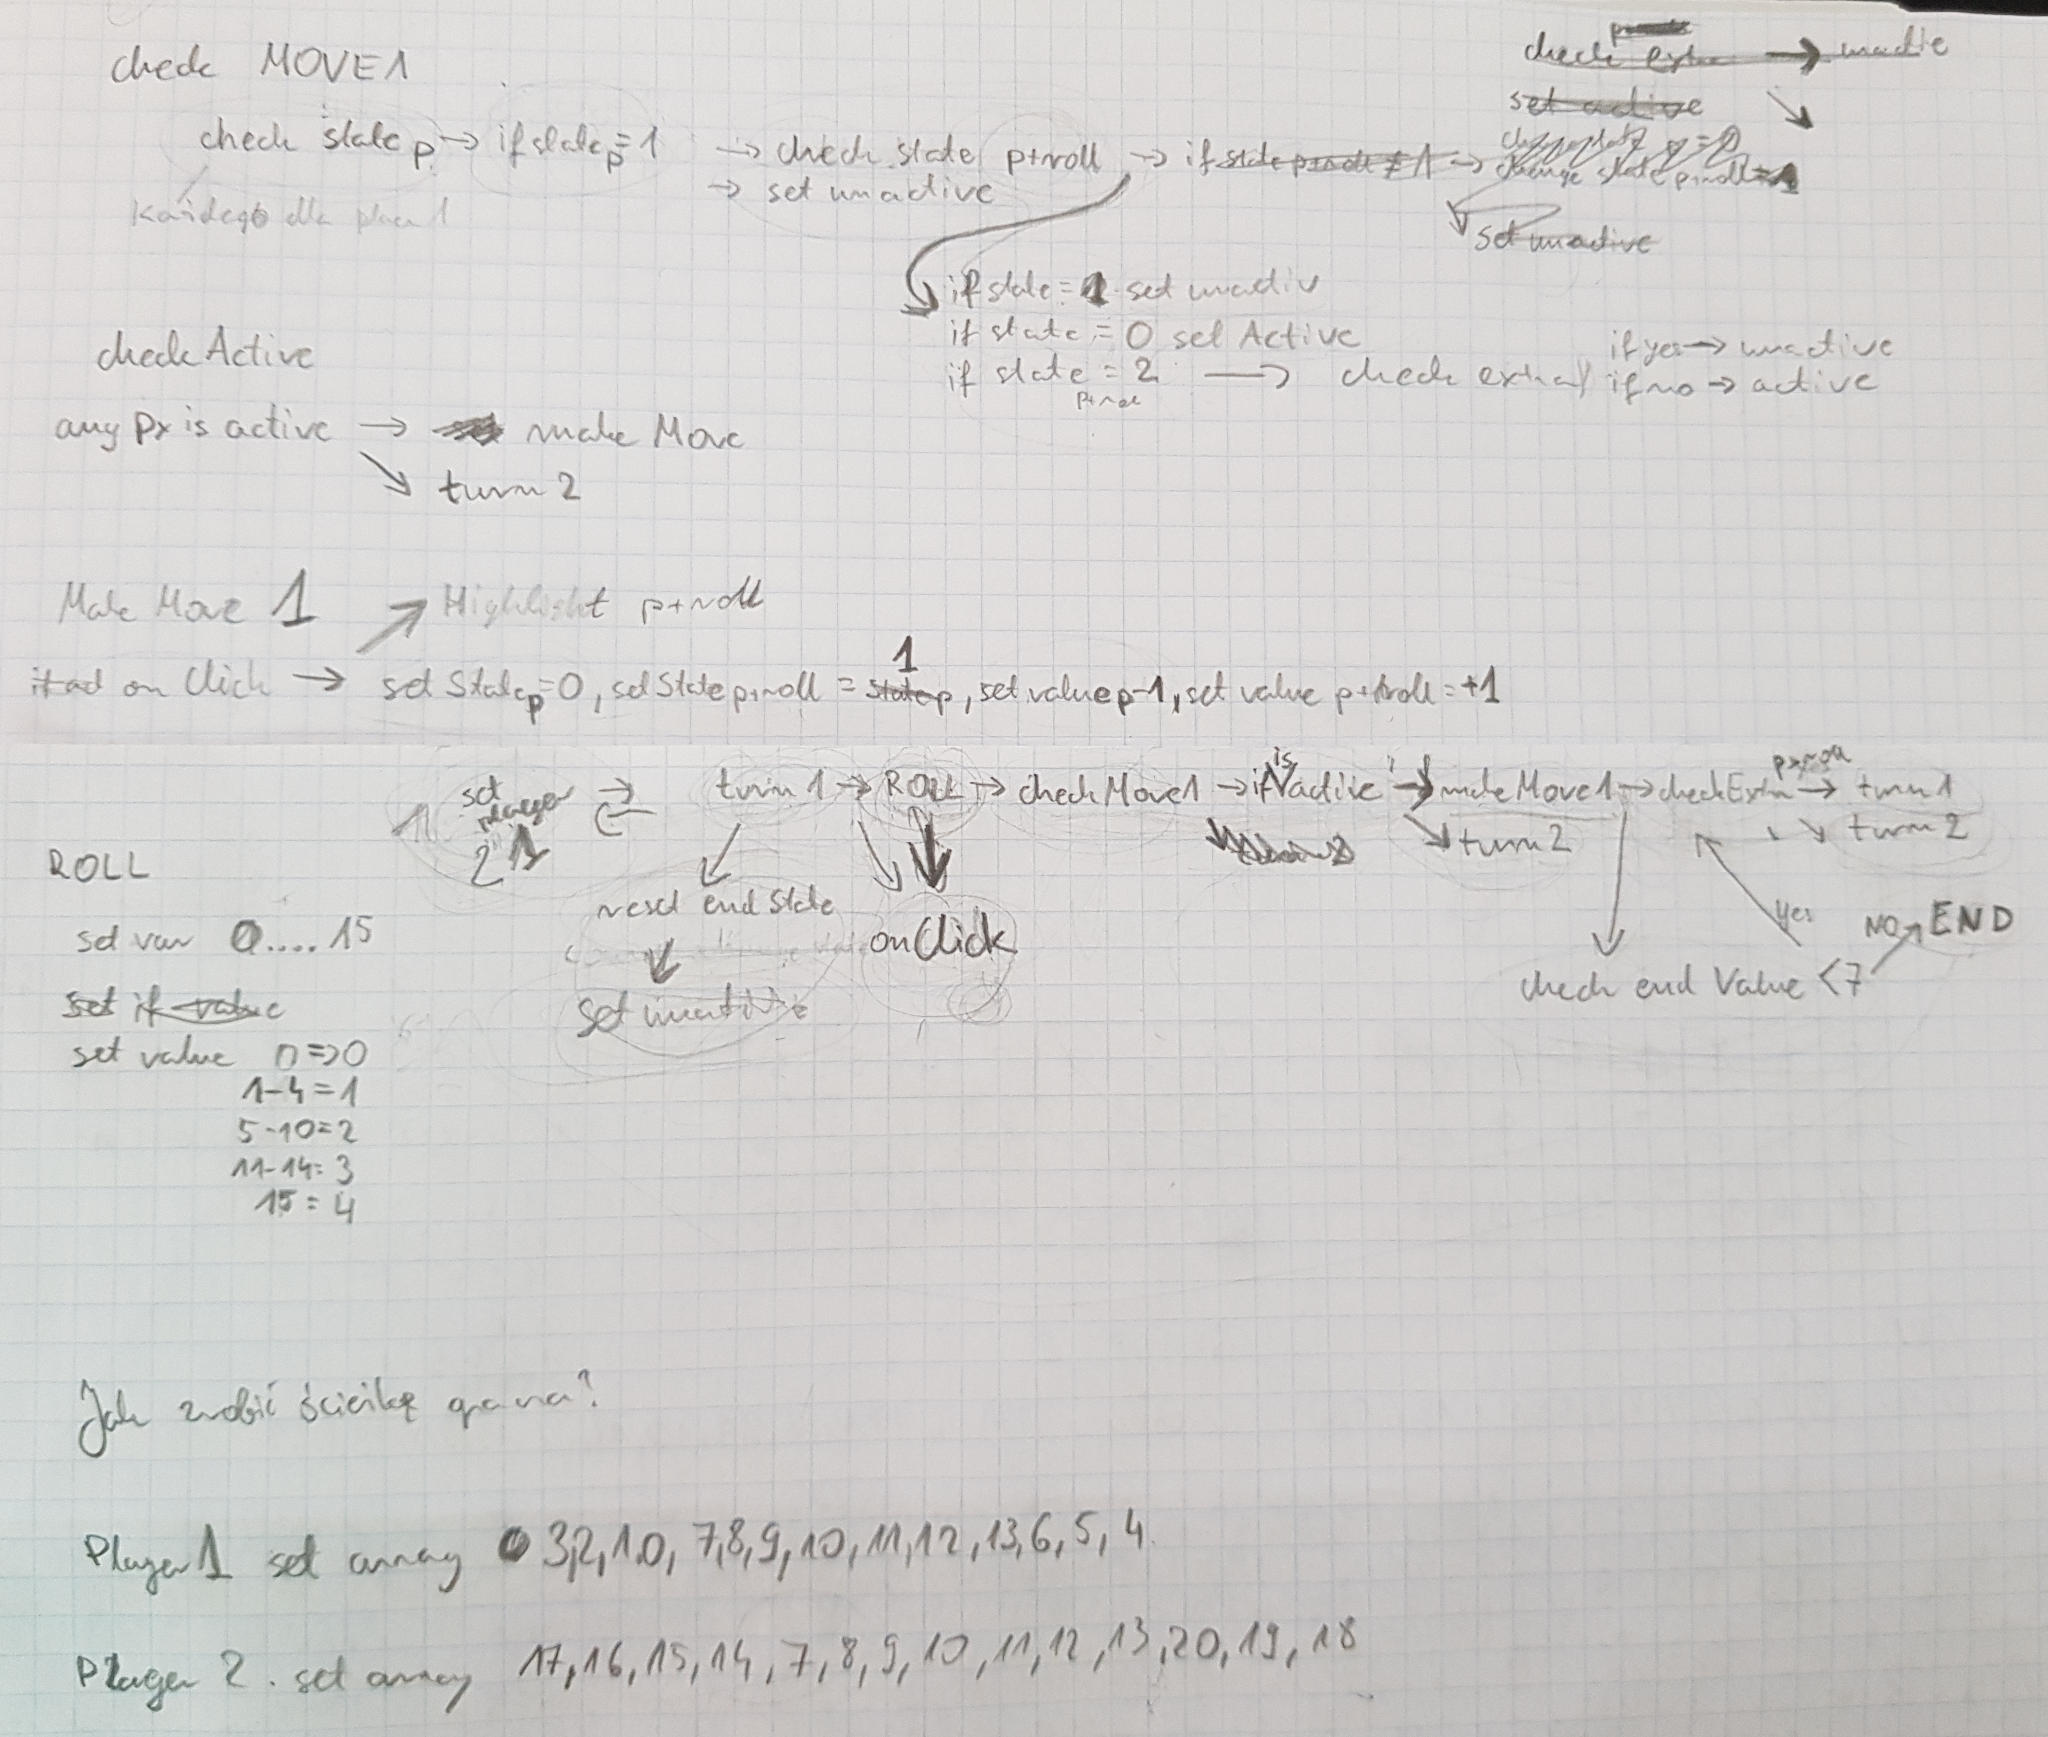 check MOVE1
check state p → if state p = 1 → check state p+roll → if state p+roll ≠ 1 →
→ set unactive
Każdego dla player 1
check extra →
set active
change state p+roll = 1
set unactive
if state = 1 set unactiv
if state = 0 set Active
if state p+roll = 2 → check extra / if yes → unactive
if no → active
check Active
any px is active → make Move
↘ turn 2
Make Move 1
↗ Highlight p+roll
on Click → set State p = 0, set State p+roll = state p 1, set value p-1, set value p+roll = +1
set player 1 turn 1 → ROLL → checkMove1 → if is active → makeMove1 → checkExtra p+roll → turn 1
↘ turn 2 ↘ turn 2
reset end state
onClick
set inactive
check end Value <7
yes
NO → END
ROLL
set var 0....15
set if value
set value 0 => 0
1-4 = 1
5-10 = 2
11-14 = 3
15 = 4
Jak zrobić ścieżkę gracza?
Player 1 set array 3,2,1,0, 7,8,9,10,11,12,13,6,5,4
Player 2. set array 17,16,15,14,7,8,9,10,11,12,13,20,19,18